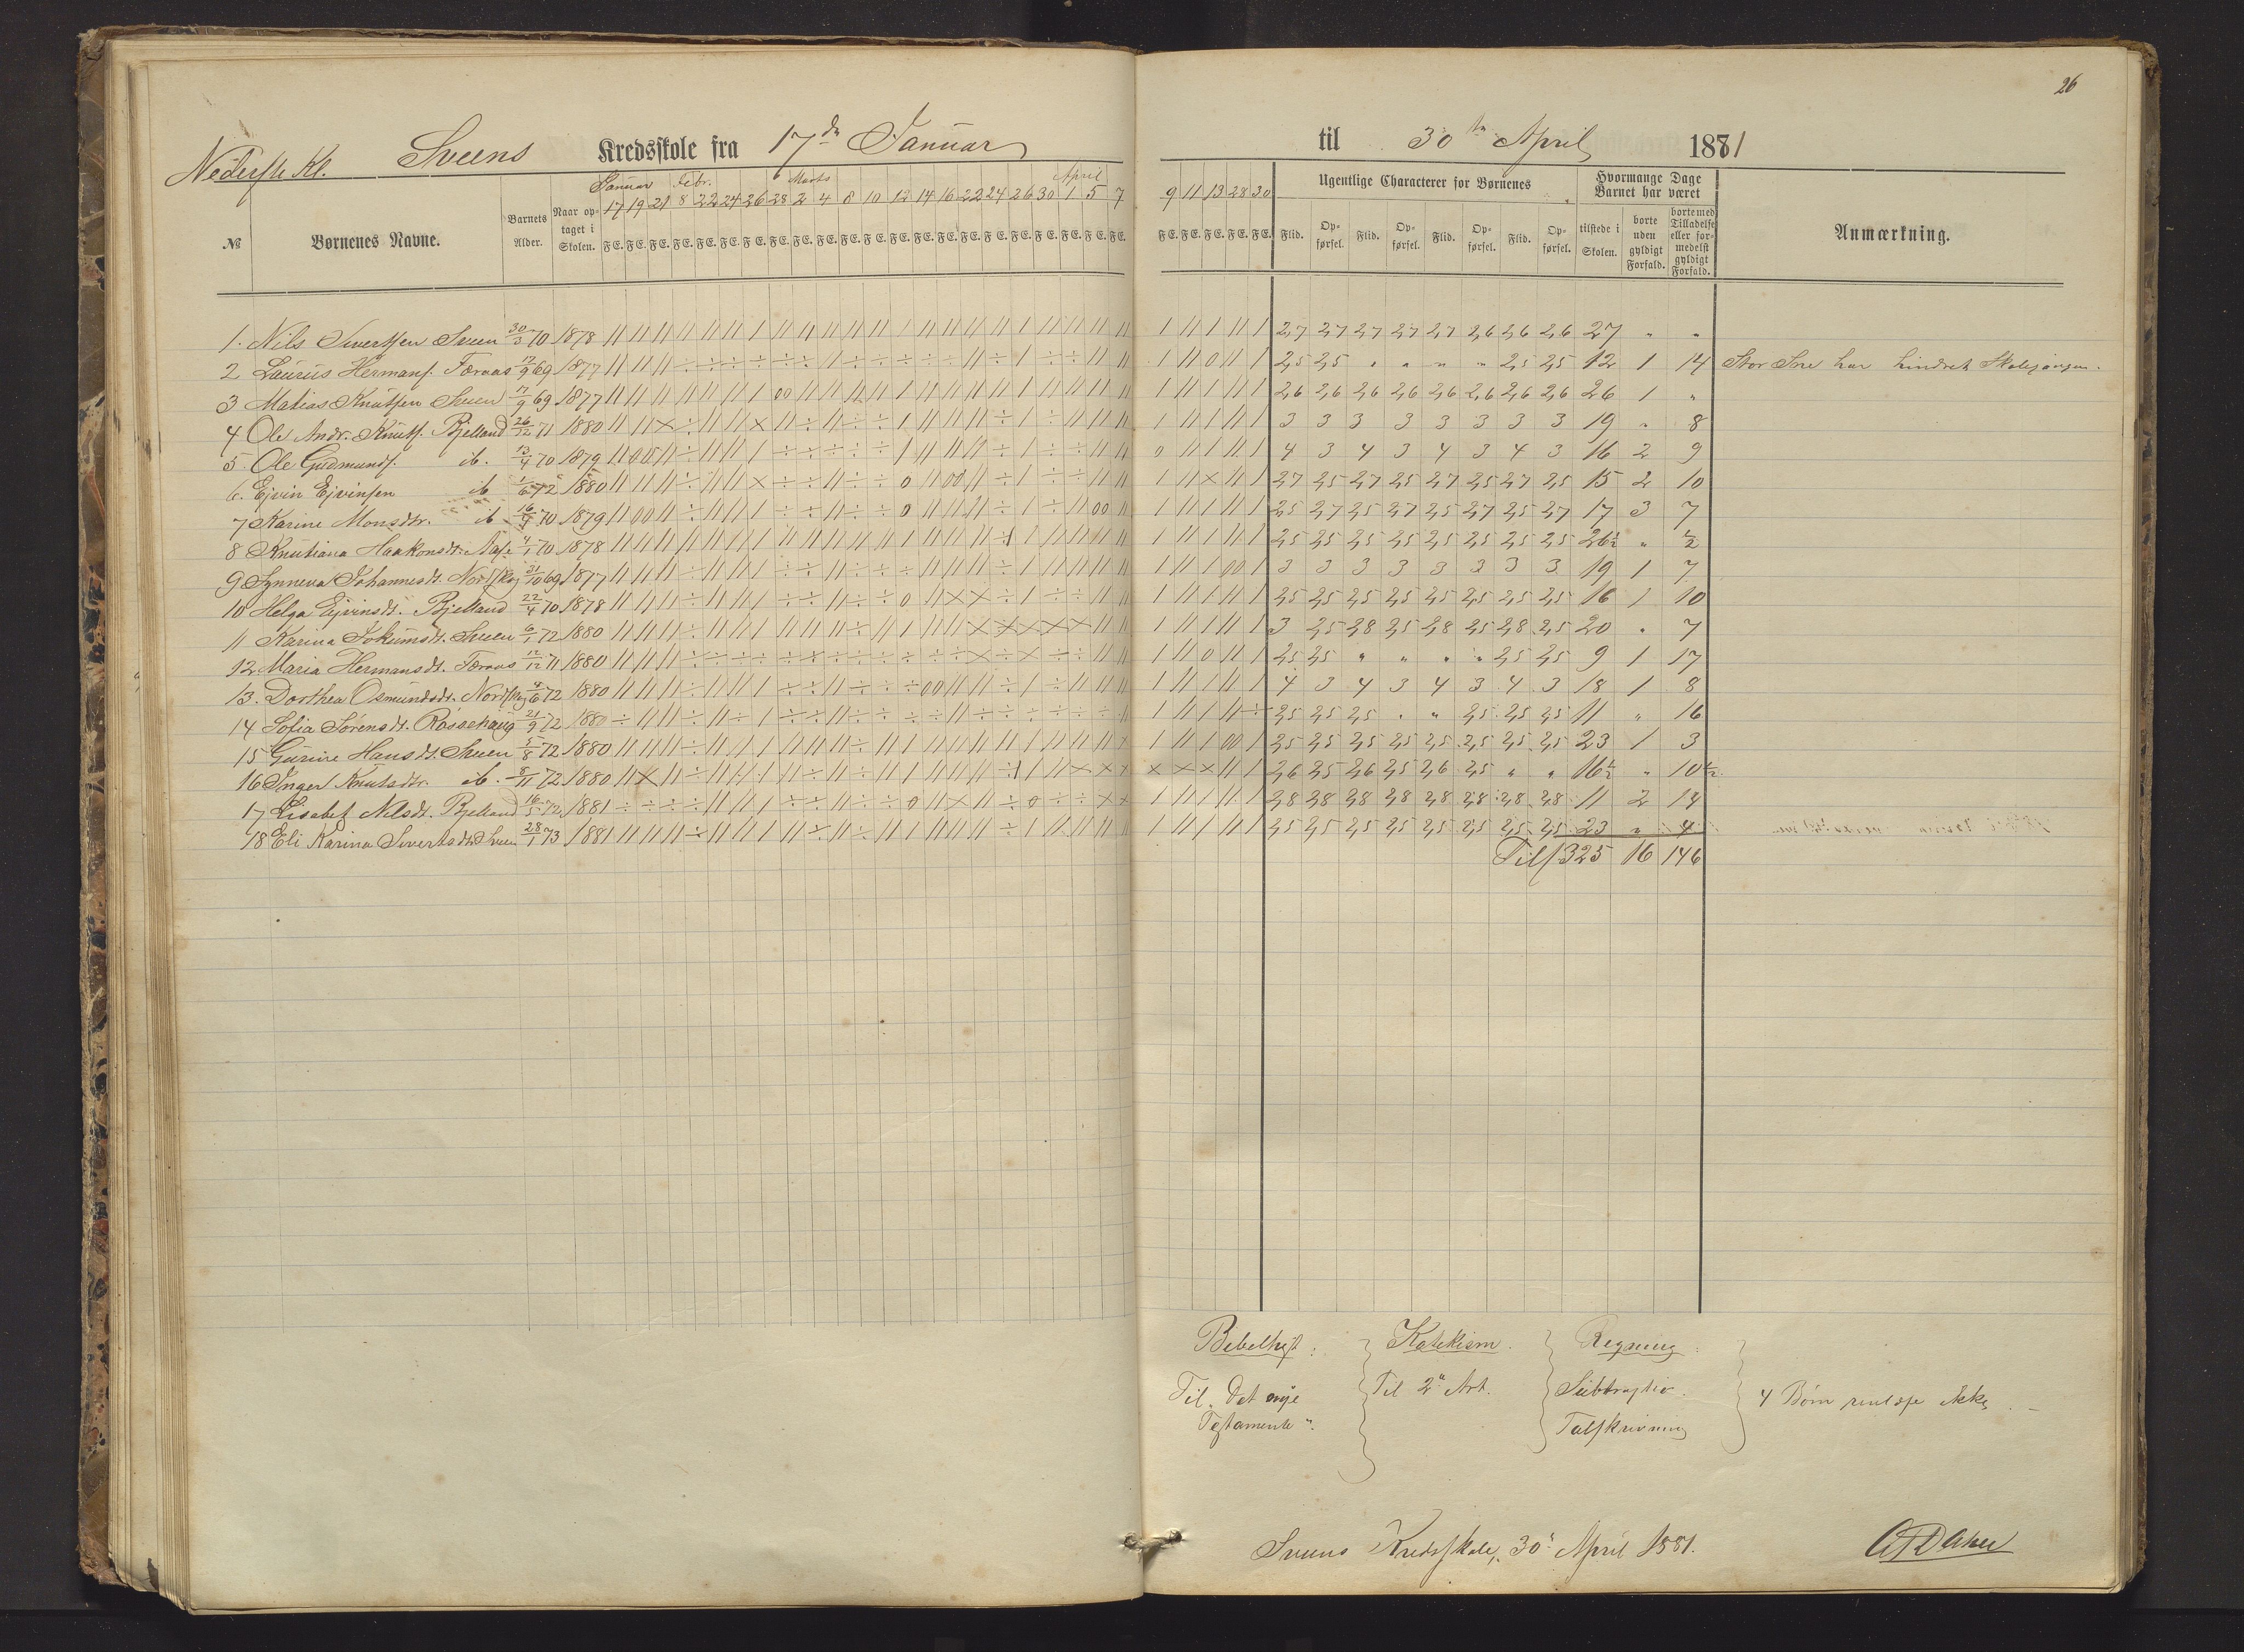 26
Nederste Kl. Sveens Kredsskole fra 17de Januar til 30te April 1881
Januar Febr. Marts April
17 19 21 8 22 24 26 28 2 4 8 10 12 14 16 22 24 26 30 1 5 7 9 11 13 28 30
№ Børnenes Navne. Barnets Alder. Naar optaget i Skolen. Ugentlige Characterer for Børnenes Hvormange Dage Barnet har været Anmærkning.
F E. Flid. Opførsel. Flid. Opførsel. Flid. Opførsel. Flid. Opførsel. tilstede i Skolen. borte uden gyldigt Forfald. borte med Tilladelse eller formedelst gyldigt Forfald.
1. Nils Sivertsen Sveen 30/3 70 1878 2,7 2,7 2,7 2,7 2,7 2,6 2,6 2,6 27 " "
2 Laurits Hermans. Føraas 69 1877 2,5 2,5 " " " " 2,5 2,5 12 1 14 Stor Sne har hindret Skolegangen.
3 Matias Knutsen Sveen 17/9 69 1877 2,6 2,6 2,6 2,6 2,6 2,6 2,6 2,6 26 1 "
4 Ole Andr. Knuts. Bjelland 26/12 71 1880 3 3 3 3 3 3 3 3 19 " 8
5. Ole Gudmunds. ib. 13/4 70 1879 4 3 4 3 4 3 4 3 16 2 9
6. Ejvin Ejvinsen ib 1/6 72 1880 2,7 2,5 2,7 2,5 2,7 2,5 2,7 2,5 15 2 10
7 Karine Monsdtr. ib 70 1879 2,5 2,7 2,5 2,7 2,5 2,7 2,5 2,7 17 3 7
8 Haakonsdt. 70 1878 2,5 2,5 2,5 2,5 2,5 2,5 2,5 2,5 26½ " ½
9 Synneva Johannesdt. 31/10 69 1877 3 3 3 3 3 3 3 3 19 1 7
10 Helga Ejvinsdt. Bjelland 22/4 70 1878 2,5 2,5 2,5 2,5 2,5 2,5 2,5 2,5 16 1 10
11 Karina Jokumsdt. Sveen 6/1 72 1880 3 2,5 2,8 2,5 2,8 2,5 2,8 2,5 20 " 7
12 Maria Hermansdt. Føraas 12/12 71 1880 2,5 2,5 " " " " 2,5 2,5 9 1 17
13. Dorthea Osmundsdt. 72 1880 4 3 4 3 4 3 4 3 18 1 8
14 Sofia Sørensdt. 21/9 72 1880 2,5 2,5 2,5 " " 2,5 2,5 2,5 11 " 16
15 Gurine Hansdt. Sveen 5/8 72 1880 2,5 2,5 2,5 2,5 2,5 2,5 2,5 2,5 23 1 3
16 Inger Knutsdtr. ib. 8/11 72 1880 2,6 2,5 2,6 2,5 2,6 2,5 " " 16½ " 10½
17 Lisabet Nilsdt. Bjelland 16/5 72 1881 2,8 2,8 2,8 2,8 2,8 2,8 2,8 2,8 11 2 14
18 Eli Karina Sivertsdt. Sveen 28/1 73 1881 2,5 2,5 2,5 2,5 2,5 2,5 2,5 2,5 23 " 4
Tils 325 16 146
Bibelhist: Katekism. Regning:
Til "Det nye Testamente". Til 2d Art. Subtraktion. Talskrivning 4 Børn ikke
Sveens Kredsskole, 30d April 1881.